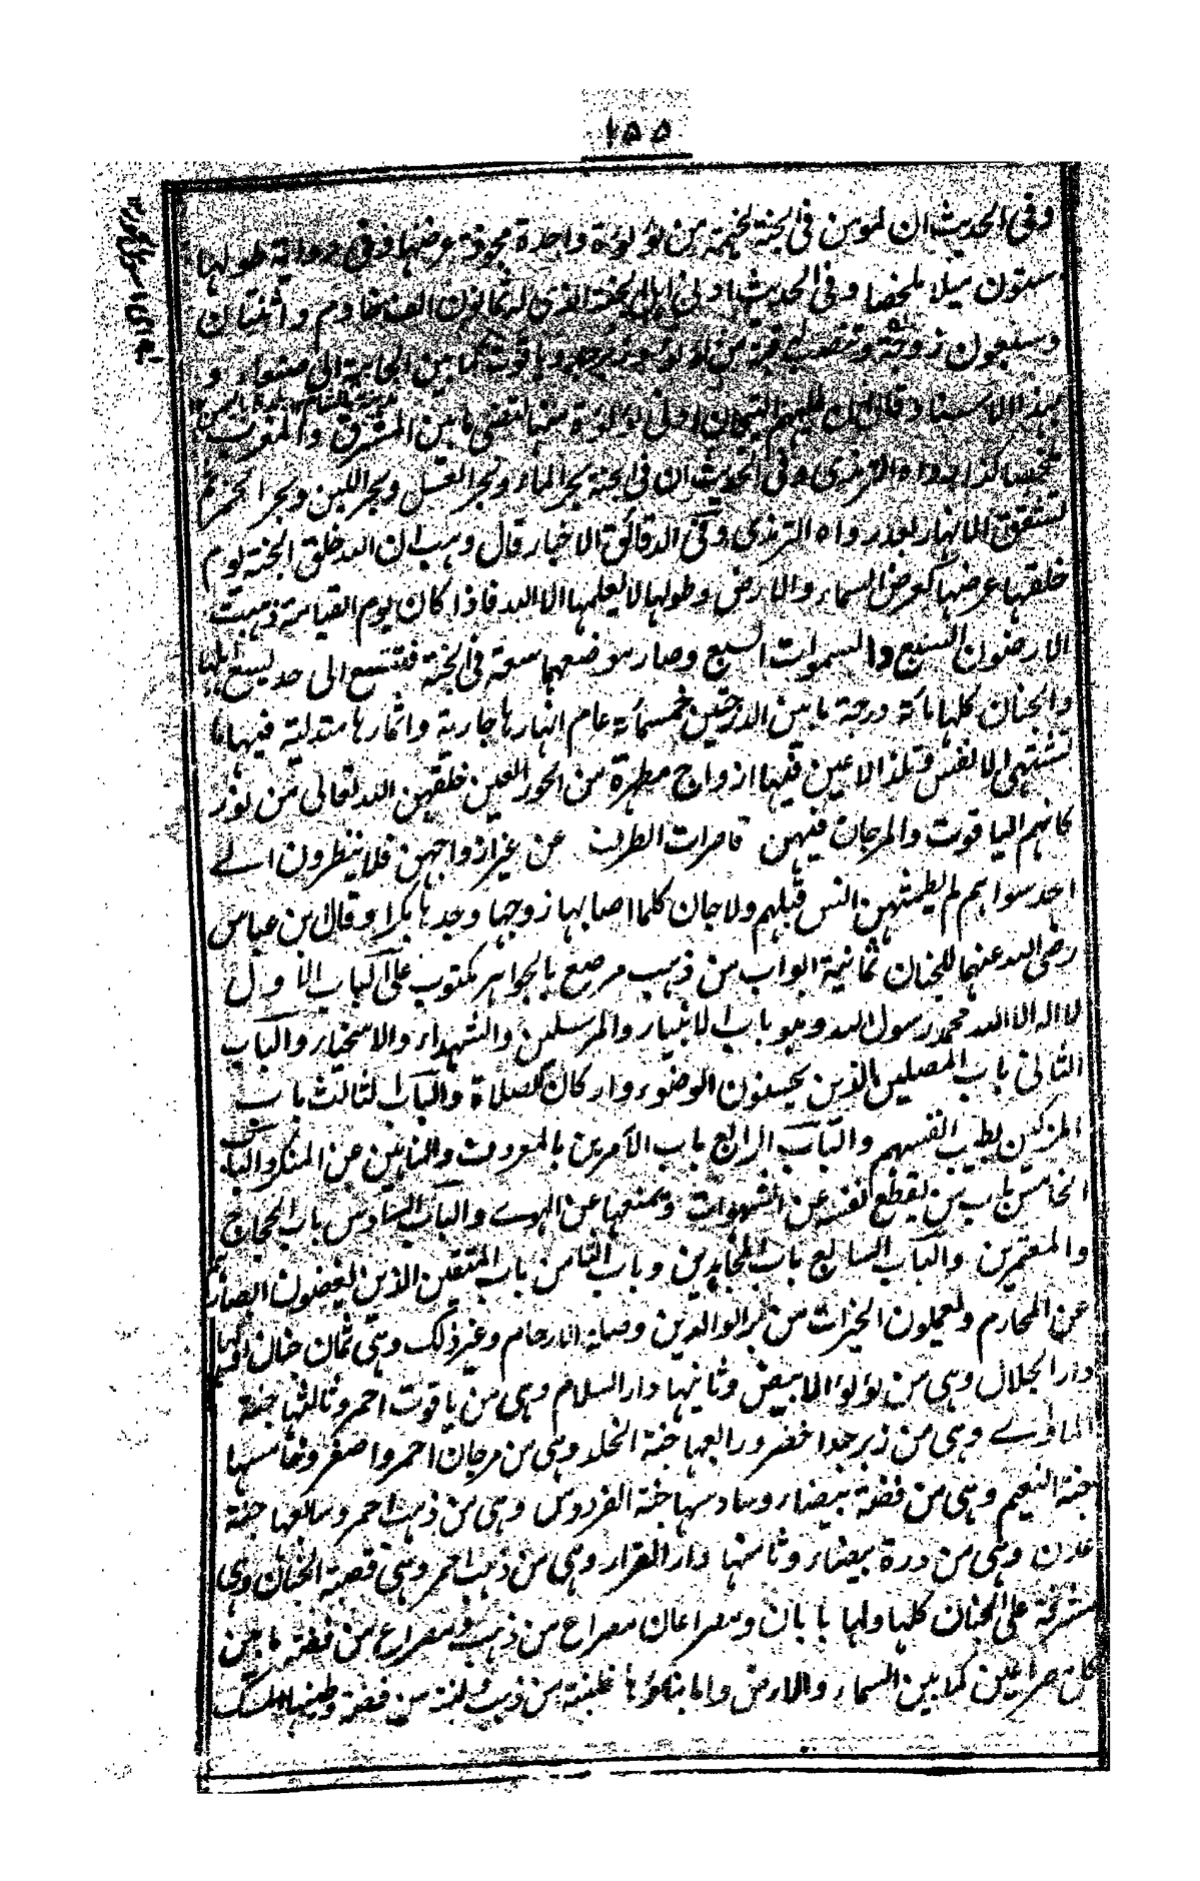 ١٥٥
وفى الحديث ان لمومن فى الجنة لخيمة من لؤلوءة واحدة مجوفة عرضها وفى رواية طولها
ستون ميلا ملخصا وفى الحديث ادنى اہل الجنة الذى له ثمانون الف خادم و اثنتان
وسبعون زوجة وتنصب له قبة من لؤلؤ وزبرجد وياقوت كما بين الجابية الى صنعاء و
بہذا الاسناد قال ان عليہم التيجان ادنى لؤلؤة منہا لتضئى ما بين المشرق والمغرب
ملخصا كذا رواه الترمذى وفى الحديث ان فى الجنة بحر الماء وبحر العسل وبحر اللبن وبحر الخمر ثم
تشقق الانہار بعد رواه الترمذى وفى الدقائق الاخبار قال وہب ان اللہ خلق الجنة يوم
خلقہا عرضہا كعرض السماء والارض وطولہا لا يعلمہا الا اللہ فاذا كان يوم القيامة ذہبت
الارضون السبع والسموات السبع وصار موضعہا سعة فى الجنة فتتسع الى حد ليسع اہلہا
والجنان كلہا مائة درجة ما بين الدرجتين خمسمائة عام انہارہا جارية واثمارہا متدلية فيہا ما
تشتہى الانفس وتلذ الاعين فيہا ازواج مطہرة من الحور العين خلقہن اللہ تعالى من نور
كانہم الياقوت والمرجان فيہن قاصرات الطرف عن غير ازواجہن فلا ينظرون الے
احد سواہم لم يطمثہن انس قبلہم ولا جان كلما اصابہا زوجہا وجدہا بكرا وقال بن عباس
رضى اللہ عنہما للجنان ثمانية ابواب من ذہب مرصع بالجواہر مكتوب على الباب الاول
لا الہ الا اللہ محمد رسول اللہ وہو باب الانبياء والمرسلين والشہداء والاسخياء والباب
الثانى باب المصلين الذين يحسنون الوضوء واركان الصلاة والباب الثالث باب
المزكين بطيب انفسہم والباب الرابع باب الآمرين بالمعروف والناہين عن المنكر والباب
الخامس باب من يقطع نفسہ عن الشہوات ويمنعہا عن الہوے والباب السادس باب الحجاج
والمعتمرين والباب السابع باب المجاہدين وباب الثامن باب المتقين الذين يغضون ابصارہم
عن المحارم ويعملون الخيرات من بر الوالدين وصلة الارحام وغير ذلك وہى ثمان جنان اولہا
دار الجلال وہى من لؤلؤ الابيض وثانيہا دار السلام وہى من ياقوت احمر وثالثہا جنة
الماوے وہى من زبرجد اخضر ورابعہا جنة الخلد وہى من مرجان احمر واصفر وخامسہا
جنة النعيم وہى من فضة بيضاء وسادسہا جنة الفردوس وہى من ذہب احمر وسابعہا جنة
عدن وہى من درة بيضاء وثامنہا دار القرار وہى من ذہب احمر وہى قصبة الجنان وہى
مشرفة على الجنان كلہا ولہا بابان ومصراعان مصراع من ذہب ومصراع من فضة ما بين
كل مصراعين كما بين السماء والارض واما بناؤہا فلبنة من ذہب ولبنة من فضة وطينہا المسك